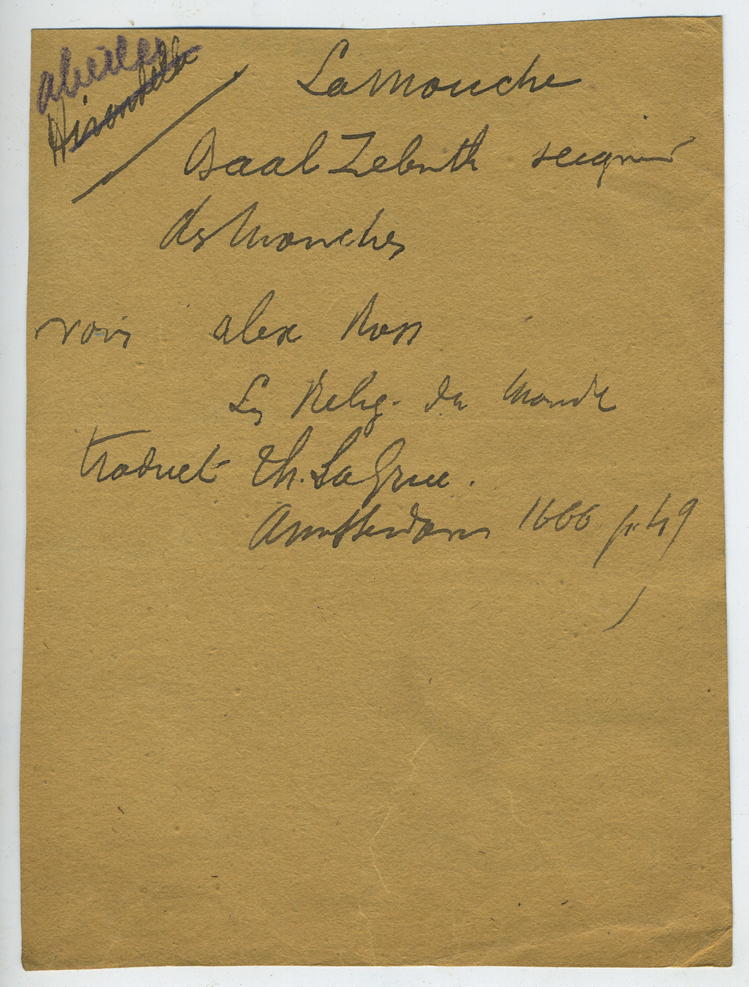 abeilles
Hirondelle
La Mouche
Baal Zebuth seigneur
des Mouches
voir alex Ross
Les Relig. du Monde
traduct Th. La Grue.
Amsterdam 1666 p. 49